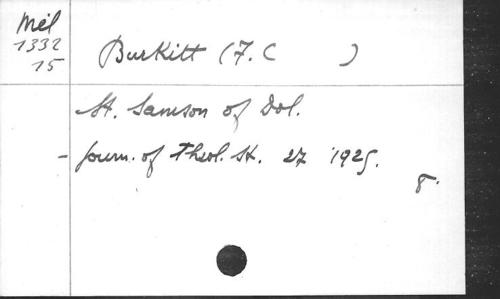 Mél
1332
15
Burkitt (F. C )
St. Samson of Dol.
- Journ. of Theol. St. 27 1925.
8°